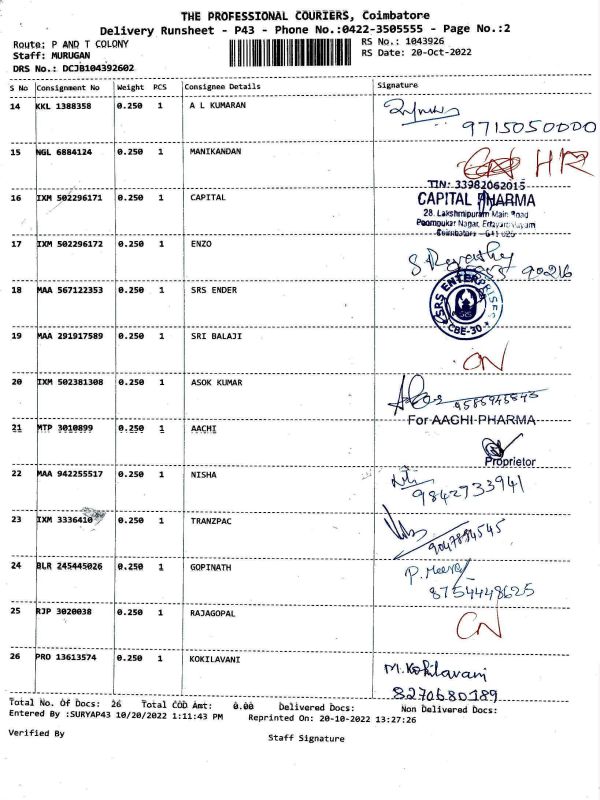 THE PROFESSIONAL COURIERS, Coimbatore
Delivery Runsheet - P43 - Phone No.:0422-3505555 - Page No.:2
Route: P AND T COLONY
RS No.: 1043926
Staff: MURUGAN
RS Date: 20-Oct-2022
DRS No.: DCJB104392602
S No Consignment No Weight PCS Consignee Details Signature
14 KKL 1388358 0.250 1 A L KUMARAN
9715050000
15 NGL 6884124 0.250 1 MANIKANDAN
HR
TIN: 33982062015
16 IXM 502296171 0.250 1 CAPITAL CAPITAL PHARMA
28, Lakshmipuram Main Road
Peompukar Nagar,
Coimbatore - 641 025
17 IXM 502296172 0.250 1 ENZO
S. Revathy
90216
18 MAA 567122353 0.250 1 SRS ENDER
SRS ENTERPRISES
CBE-30
19 MAA 291917589 0.250 1 SRI BALAJI
CN
20 IXM 502381308 0.250 1 ASOK KUMAR
9585945843
For AACHI PHARMA
21 MTP 3010899 0.250 1 AACHI
Proprietor
22 MAA 942255517 0.250 1 NISHA
9842733941
23 IXM 3336410 0.250 1 TRANZPAC
9047894545
24 BLR 245445026 0.250 1 GOPINATH
8754448625
25 RJP 3020038 0.250 1 RAJAGOPAL
CN
26 PRO 13613574 0.250 1 KOKILAVANI
M. Kokilavani
8270680189
Total No. Of Docs: 26 Total COD Amt: 0.00 Delivered Docs: Non Delivered Docs:
Entered By :SURYAP43 10/20/2022 1:11:43 PM Reprinted On: 20-10-2022 13:27:26
Verified By
Staff Signature